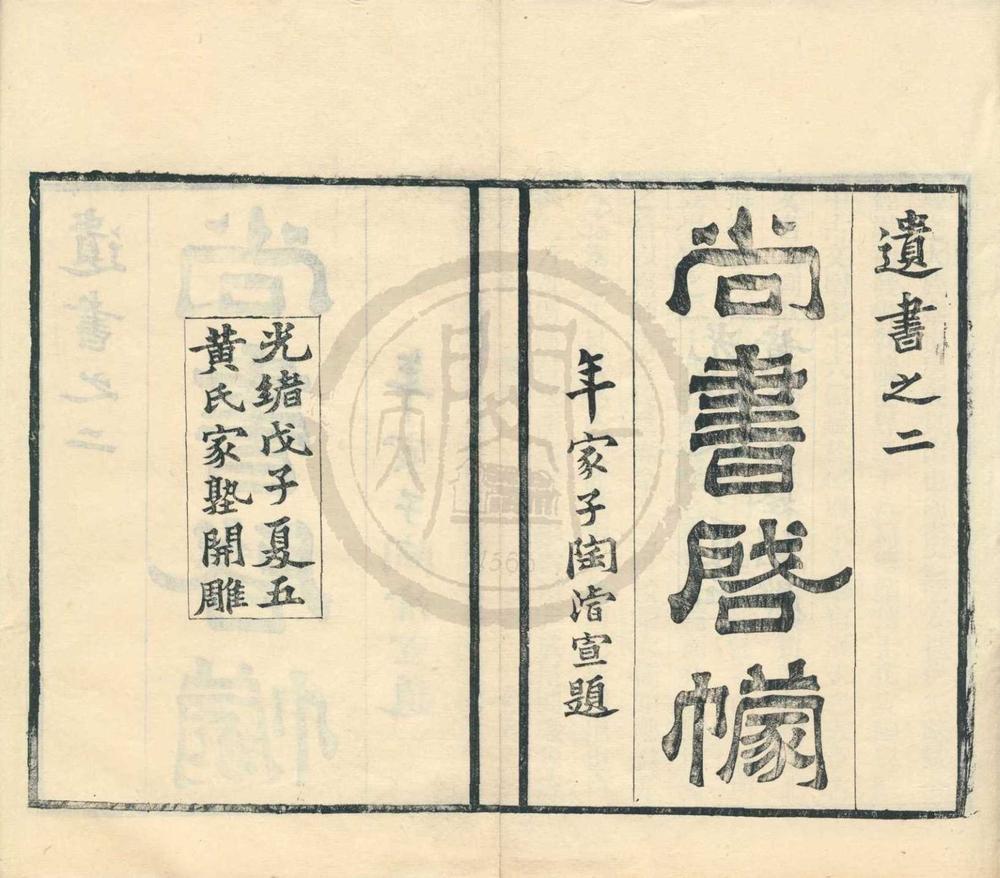 遺書之二
尚書啓幪
年家子陶濬宣題
光緒戊子夏五
黃氏家塾開雕
1566